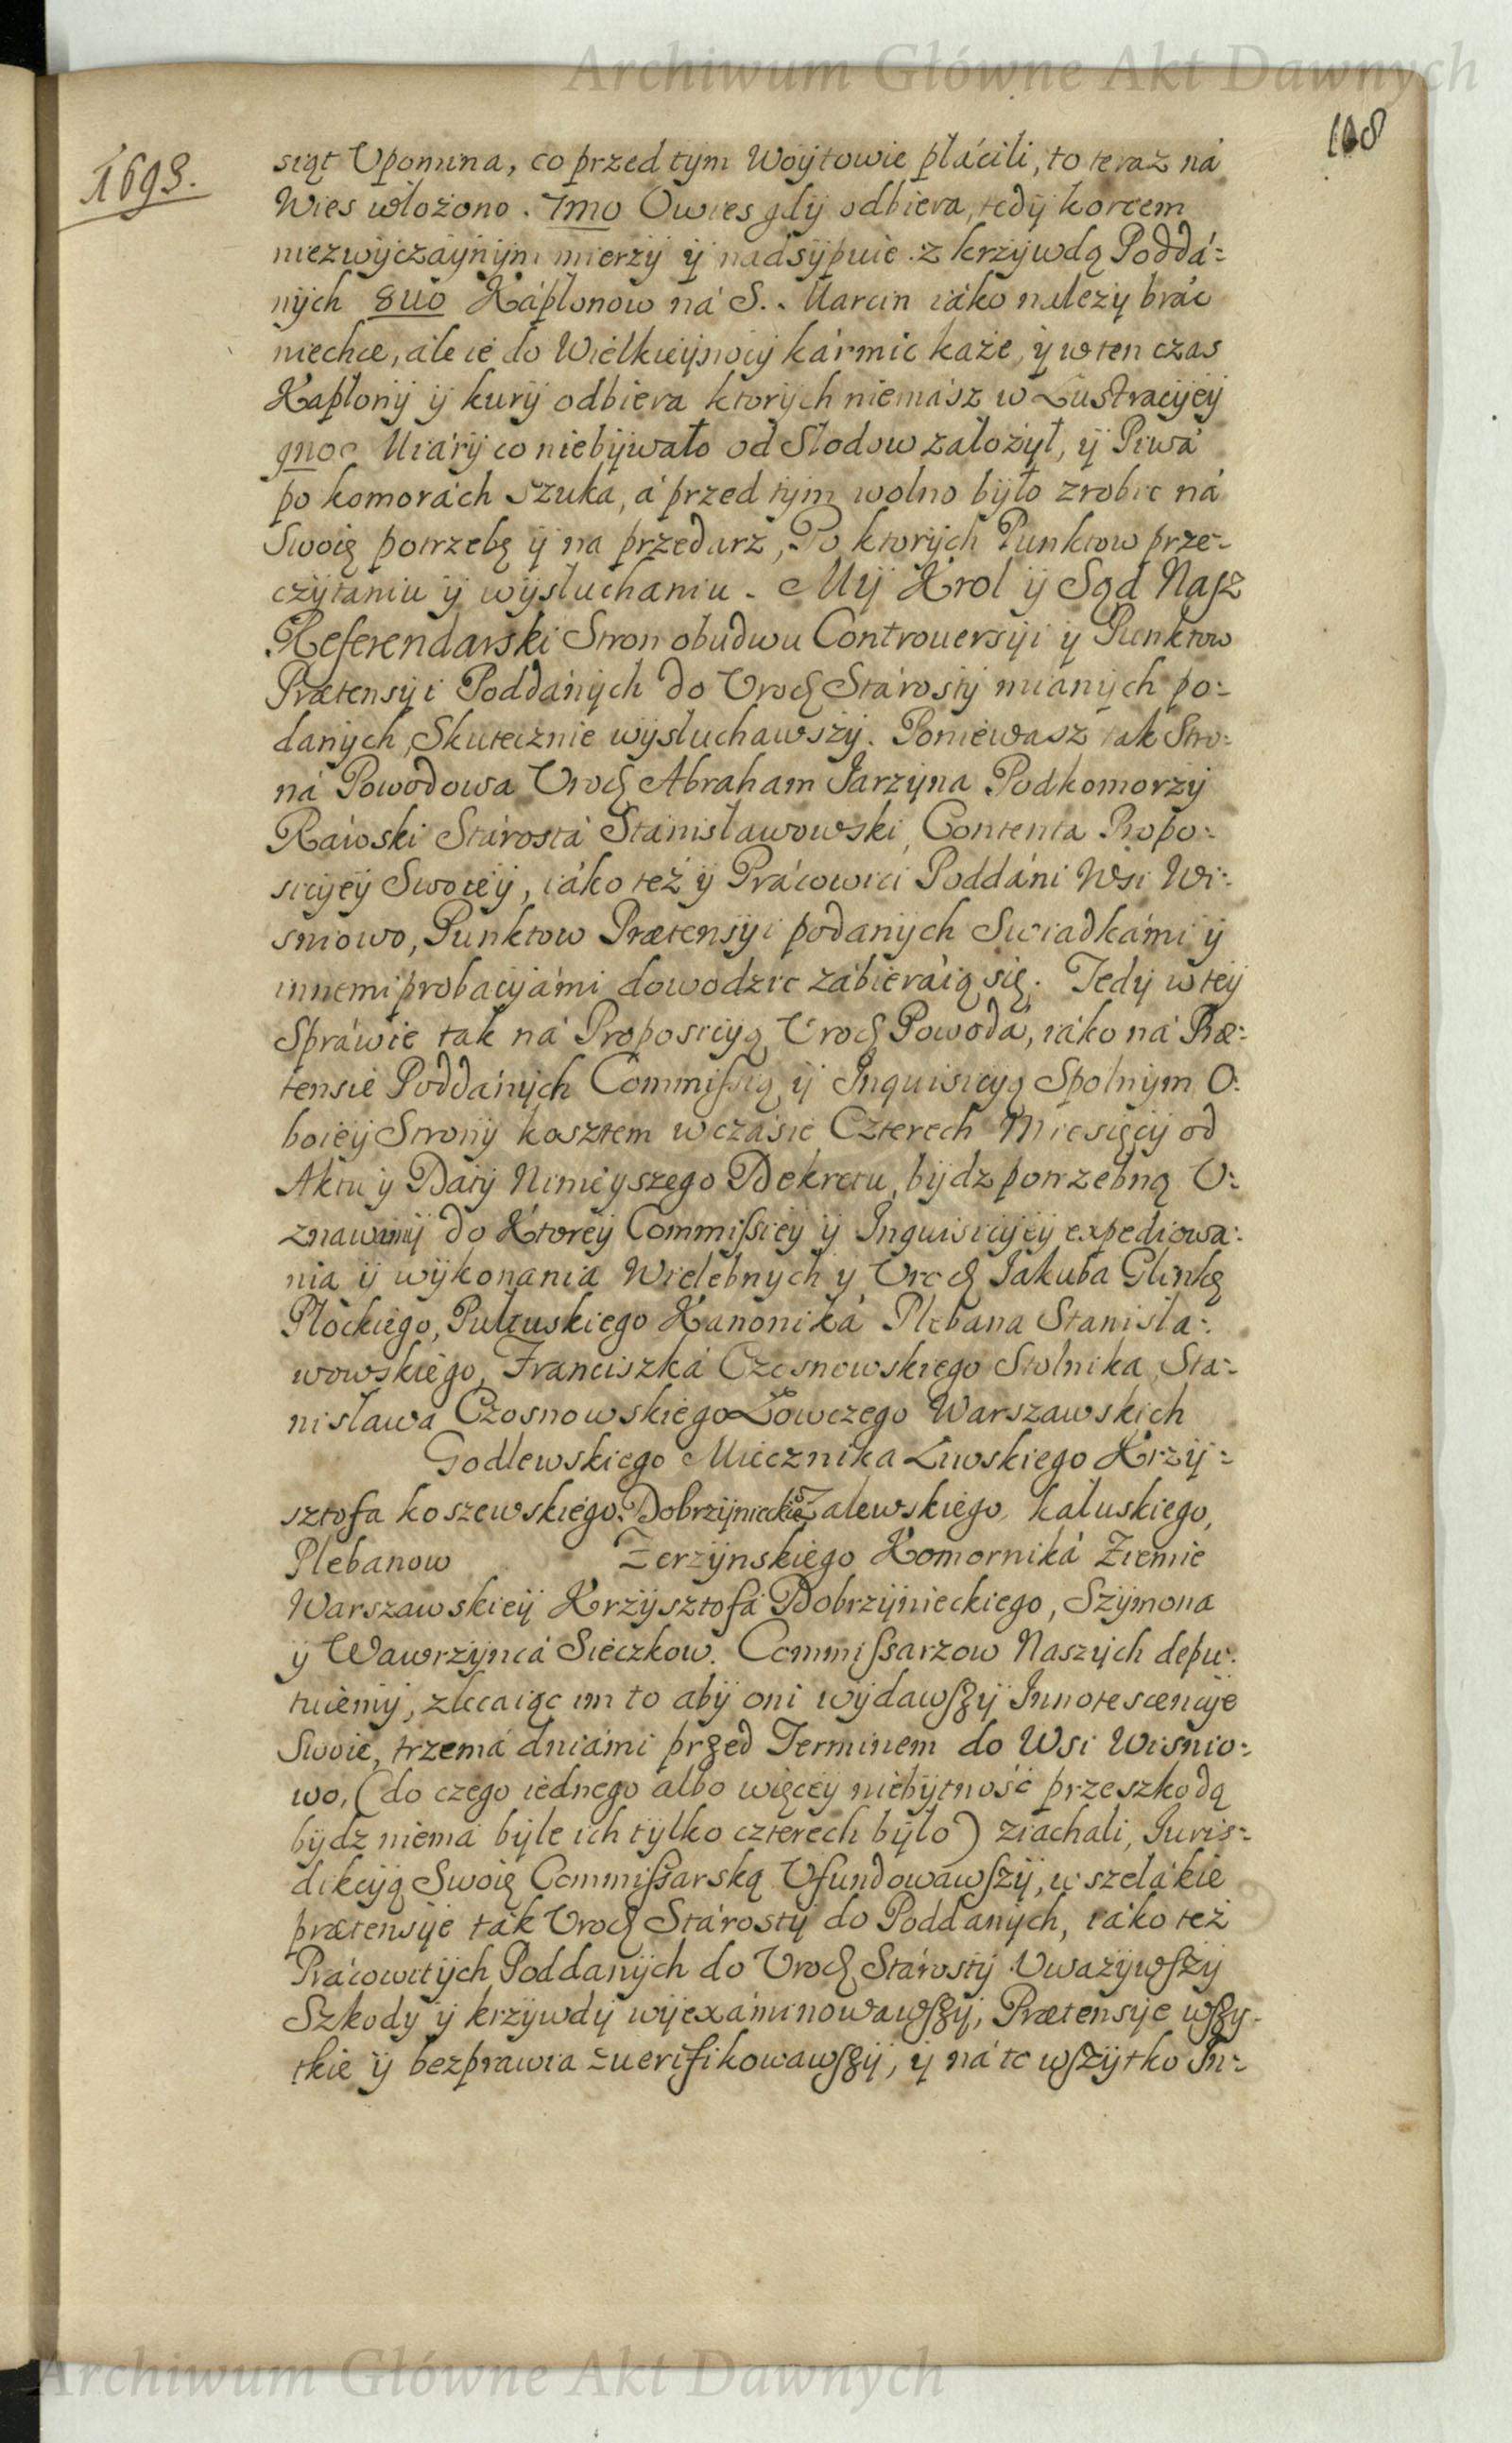 Archiwum Główne Akt Dawnych
108
1693.
siąt Vpomina, co przed tym Woytowie płácili, to teraz ná
Wies włożono. 7mo Owies gdy odbiera, tedy korcem
niezwyczaynym mierzy y nadsypuie z krzywdą Poddá-
nych 8uo Kápłonow ná S. Marcin iáko należy bráć
niechce, ále ie do Wielkieynocy kármić każe, y w ten czas
Kapłony y kury odbiera ktorych niemász w Lustracyey
9no Miáry co niebywało od Słodow założył, y Piwá
po komorách szuka, á przed tym wolno było zrobic ná
Swoię potrzebę y na przedarz, Po ktorych Punktow prze-
czytaniu y wysłuchaniu. My Krol y Sąd Nasz
Referendarski Stron obudwu Controuersyi y Punktow
Prætensyi Poddánych do Vrodz Stárosty mianych po-
danych, Skutecznie wysłuchawszy. Poniewasz tak Stro-
ná Powodowa Vrodz Abraham Jarzyna Podkomorzy
Rawski Stárostá Stánisławowski, Contenta Propo-
sicyey Swoiey, iáko też y Prácowici Poddáni Wsi Wi-
sniowo, Punktow Prætensyi podanych Swiadkámi y
innemi probacyámi dowodzic zábieráią się. Tedy w tey
Spráwie tak ná Proposicyą Vrodz Powodá, iáko ná Præ-
tensie Poddánych Commissią y Inquisicyą Spolnym O-
boiey Strony kosztem w czásie Czterech Miesięcy od
Aktu y Daty Ninieyszego Dekretu, bydz potrzebną V-
znawamy do Ktorey Commissiey y Inquisicyey expediowa-
nia y wykonania Wielebnych y Vrodz Jakuba Glinkę
Płockiego, Pułtuskiego Kanoniká Plebana Stanisła-
wowskiego, Franciszká Czosnowskiego Stolnika, Sta-
nisława Czosnowskiego Łowczego Warszawskich
Godlewskiego Miecznika Liwskiego Krzy-
sztofa koszewskiego. Dobrzynieckie Zalewskiego kałuskiego,
Plebanow Zerzynskiego Komorniká Ziemie
Warszawskiey Krzysztofá Dobrzynieckiego, Szymona
y Wawrzyncá Sieczkow. Commissarzow Naszych depu-
tuiemy, zlecaiąc im to aby oni wydawszy Innotescencye
Swoie, trzemá dniámi przed Terminem do Wsi Wisnio-
wo, (do czego iednego albo więcey niebytność przeszkodą
bydz niemá byle ich tylko czterech było) ziachali, Juris-
dikcyą Swoię Commissarską Vfundowawszy, wszelákie
prætensye ták Vrodz Stárosty do Poddanych, iáko też
Prácowitych Poddanych do Vrodz Stárosty Vważywszy
Szkody y krzywdy wyexáminowawszy, Prætensye wszy-
tkie y bezprawia zuerifikowawszy, y ná to wszytko In-
Archiwum Główne Akt Dawnych